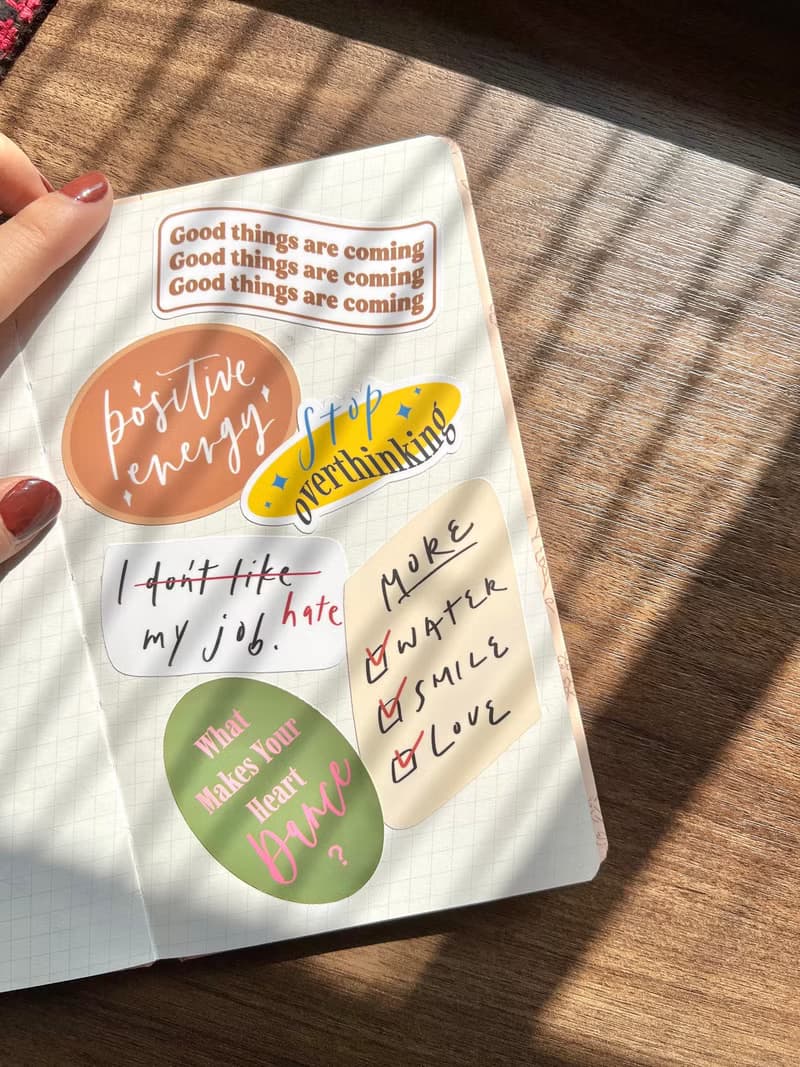 Good things are coming
Good things are coming
Good things are coming
positive
energy
Stop
overthinking
I don't like
hate
my job.
MORE
WATER
SMILE
LOVE
What
Makes Your
Heart
Dance
?